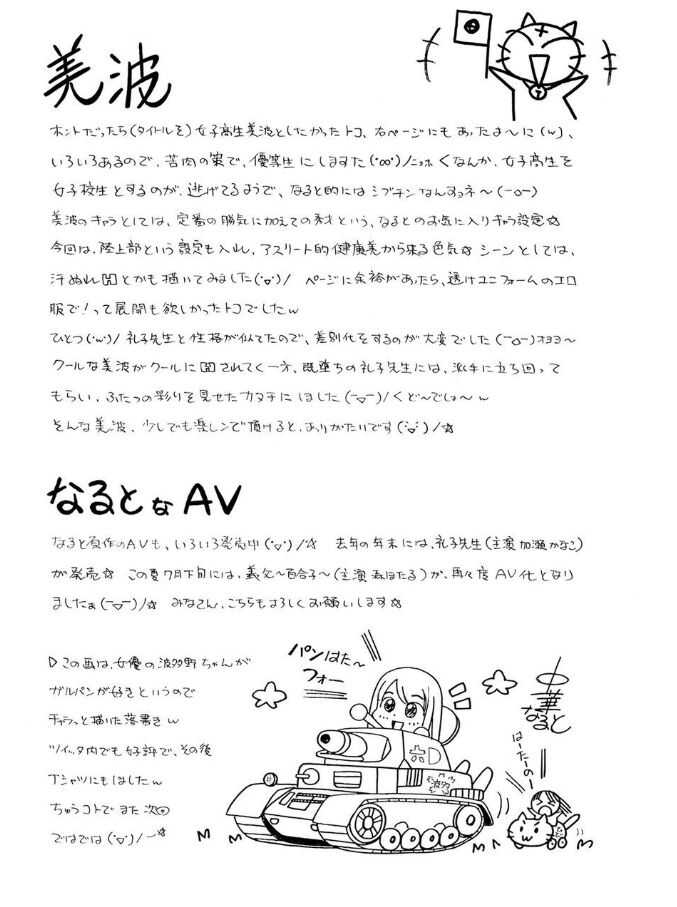 美波
ホントだったら(タイトルを)女子高生美波としたかったトコ、右ページにもあったよーに(ˊwˋ)、
いろいろあるので、苦肉の策で、優等生にしますた(°∞°)/ニョホ くなんか、女子高生を
女子校生とするのが、逃げてるようで、なると的にはシブチンなんすョネ〜(ー△ー)
美波のキャラとしては、定番の勝気に加えての秀才という、なるとのお気に入りキャラ設定☆
今回は、陸上部という設定も入れ、アスリート的健康美から来る色気☆ シーンとしては、
汗ぬれ図とかも描いてみました(°▽°)/ ページに余裕があったら、透けユニフォームのエロ
服で!って展開も欲しかったトコでしたw
ひとつ(°w°)/ 礼子先生と性格が似てたので、差別化をするのが大変でした(ー△ー)オヨヨ〜
クールな美波がクールに図されてく一方、既堕ちの礼子先生には、派手に立ち回って
もらい、ふたつの彩りを見せたカタチにしました(ー▽ー)/くど〜でしょ〜w
そんな美波、少しでも楽しンで頂けると、ありがたいです(°▽°)/☆
なるとなAV
なると原作のAVも、いろいろ発売中(°▽°)/☆ 去年の年末には、礼子先生(主演 加瀬かなこ)
が発売☆ この夏7月下旬には、義父〜百合子〜(主演 森ほたる)が、再々度AV化となり
ましたぁ(ー▽ー)/☆ みなさん、こちらもよろしくお願いします☆
▷この画は、女優の波多野ちゃんが
ガルパンが好きというので
チャラっと描いた落書きw
ツイッタ内でも好評で、その後
Tシャツにもしましたw
ちゅうコトでまた次回
ではでは(°▽°)/〜☆
パンはた〜
フォー
中華
なると
はーたーのー